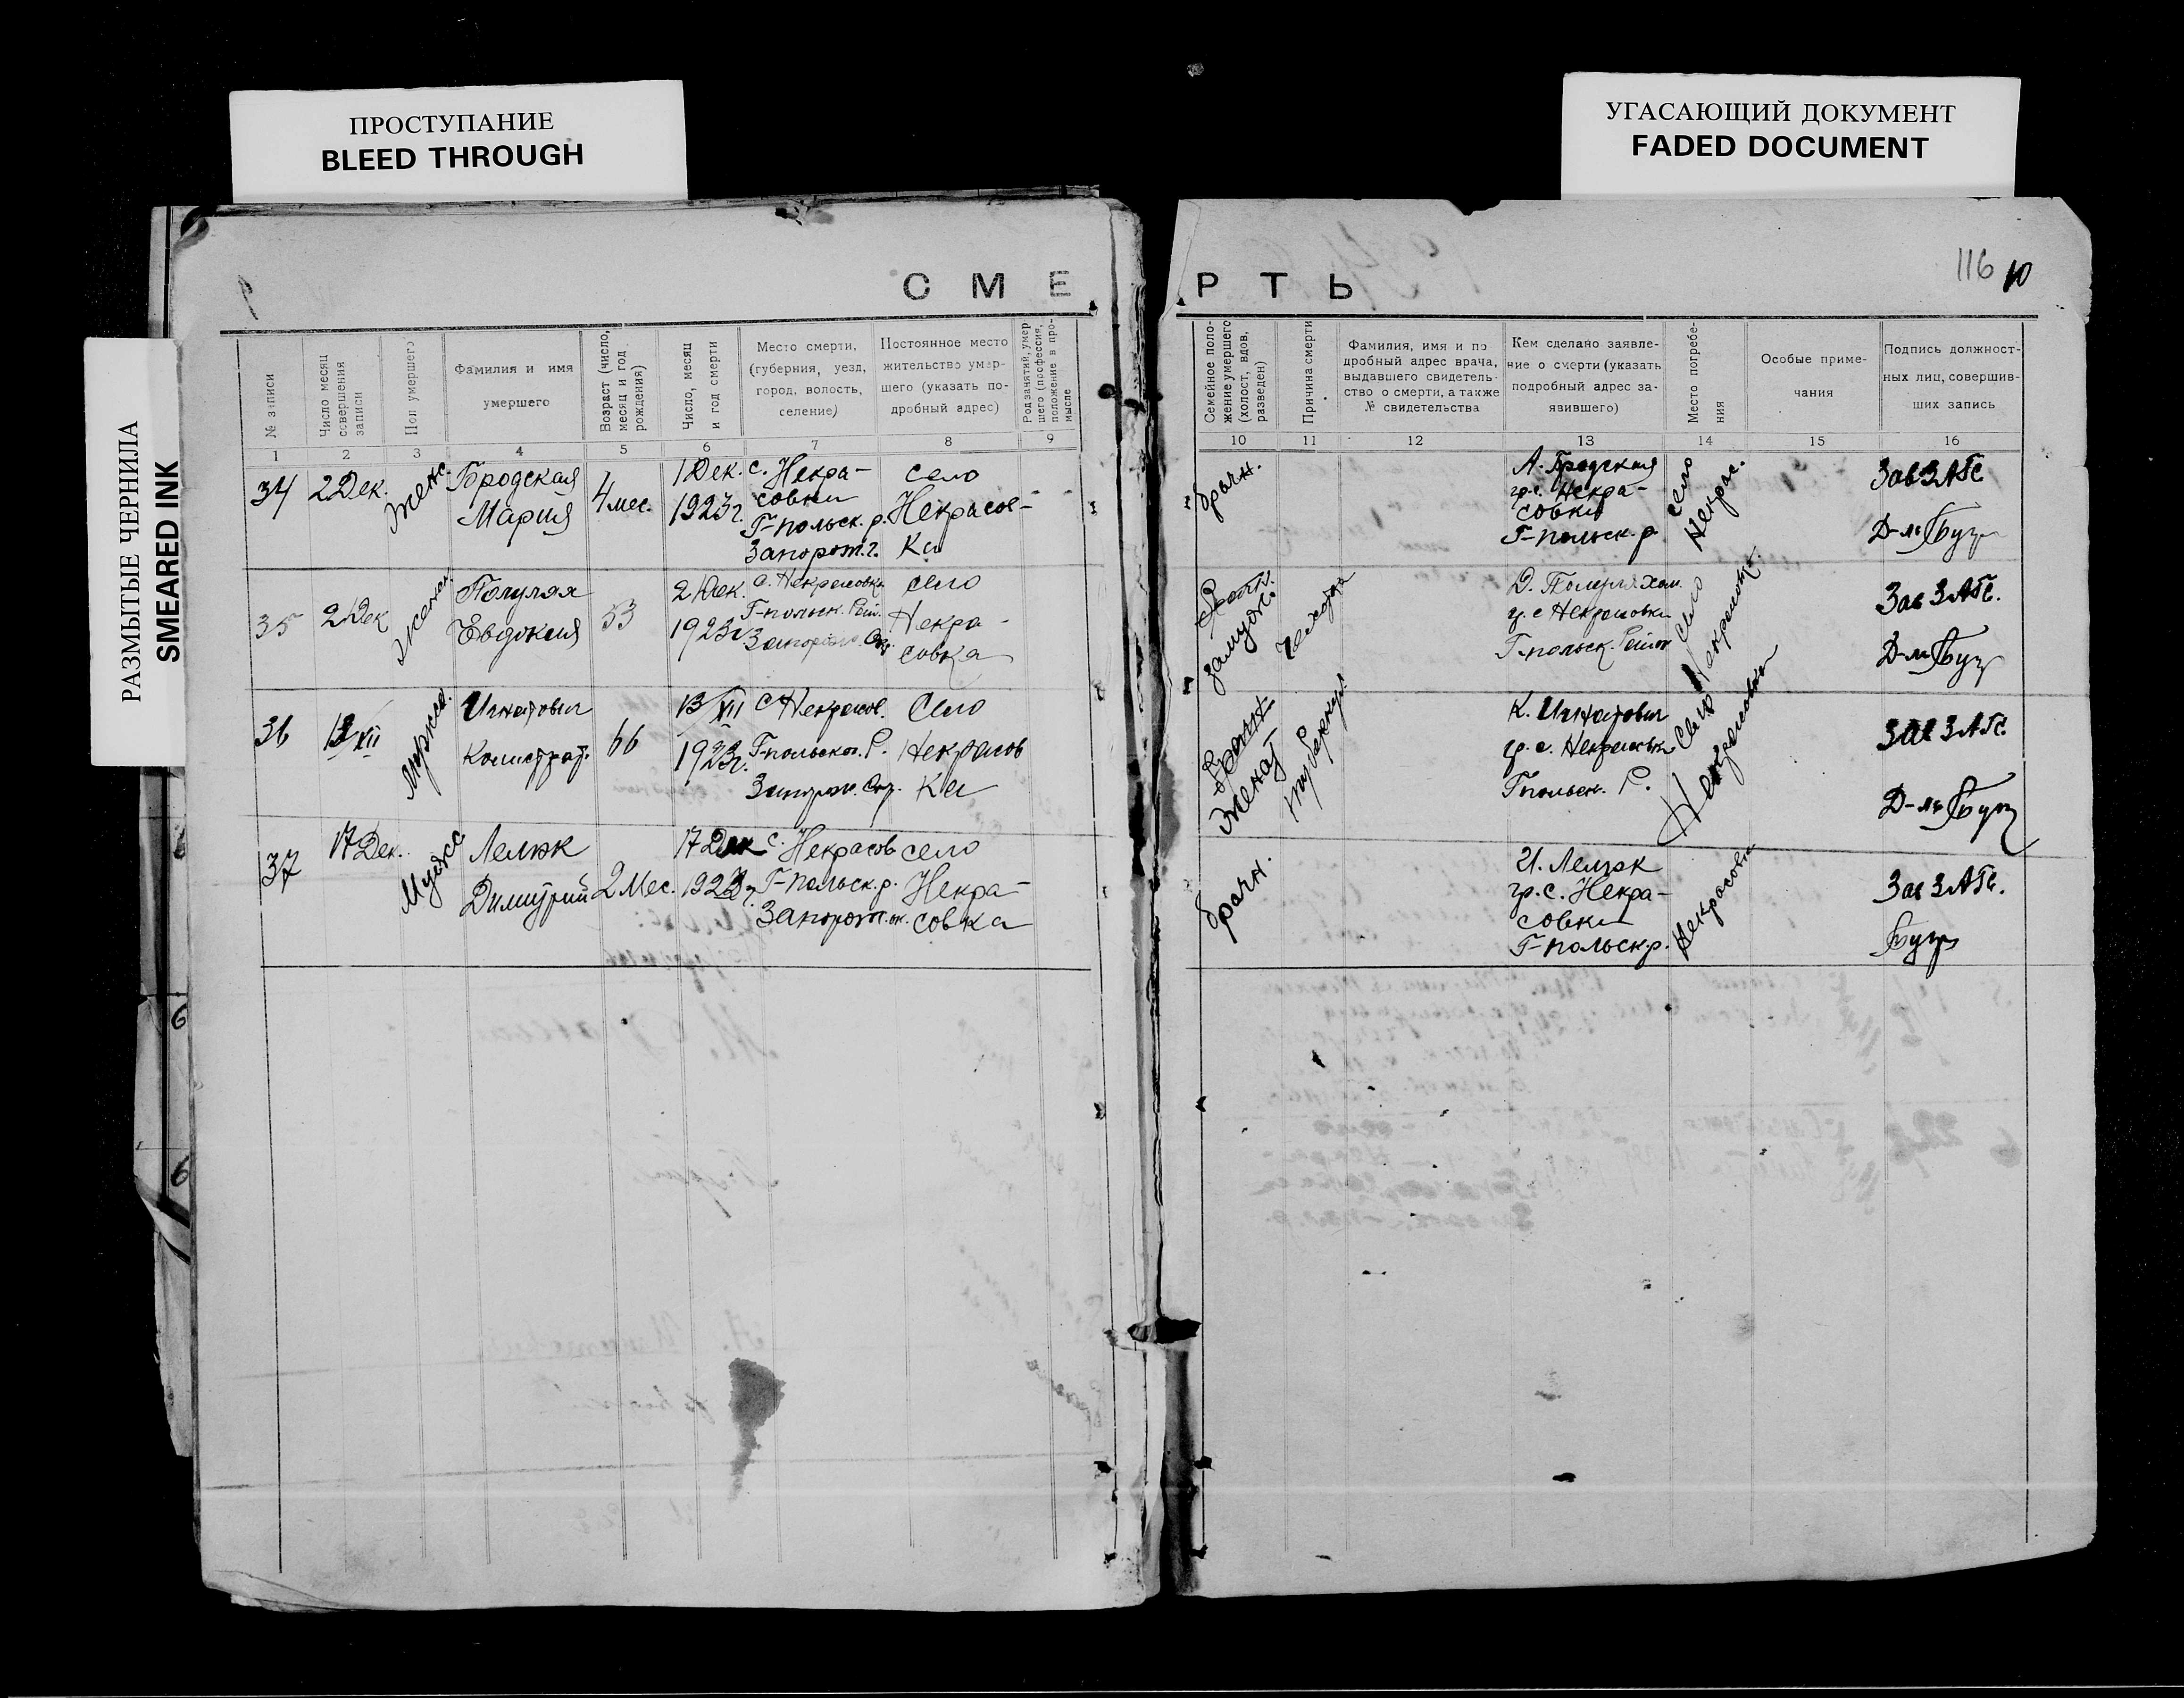 ПРОСТУПАНИЕ
BLEED THROUGH
УГАСАЮЩИЙ ДОКУМЕНТ
FADED DOCUMENT
РАЗМЫТЫЕ ЧЕРНИЛА
SMEARED INK
116 10
СМЕРТЬ
№ записи
Число месяц
совершения
записи
Пол умершего
Фамилия и имя
умершего
Возраст (число,
месяц и год
рождения)
Число, месяц
и год смерти
Место смерти,
(губерния, уезд,
город, волость,
селение)
Постоянное место
жительство умер-
шего (указать по-
дробный адрес)
Род занятий, умер
шего (профессия,
положение в про-
мысле
Семейное поло-
жение умершего
(холост, вдов,
разведен)
Причина смерти
Фамилия, имя и по
дробный адрес врача,
выдавшего свидетель-
ство о смерти, а также
№ свидетельства
Кем сделано заявле-
ние о смерти (указать
подробный адрес за-
явившего)
Место погребе-
ния
Особые приме-
чания
Подпись должност-
ных лиц, совершив-
ших запись
1 2 3 4 5 6 7 8 9 10 11 12 13 14 15 16
34
2 Дек.
Женс.
Бродская
Мария
4 мес.
1 Дек.
1923 г.
с. Некра-
совки
Г-польск. р.
Запорож. г.
село
Некрасов-
ка
брачн.
А. Бродская
гр. с. Некра-
совки
Г-польск. р.
село
Некрас.
Зав ЗАГС
Д-ль
35
2 Дек
Женск.
Евдокия
53
2 Дек.
1923 г
с. Некрасовка
Г-польск. Рай.
село
Некра-
совка
Брачн.
замужн.
гр. с Некрасовки
Г-польск. Район
село
Некрасовка
Зав ЗАГС.
Д-ль
36
13/XII
Мужск.
Игнатович
Калистрат.
66
13/XII
1923 г.
с Некрасов.
Г-польског. Р.
Запорож. Окр.
Село
Некрасов
ка
Брачн
Женат
туберкул.
К. Игнатович
гр. с. Некрасовк
Г-польск. Р.
Село
Некрасовка
Зав ЗАГС.
Д-ль
37
17 Дек.
Мужс
Лелюк
Димитрий
2 Мес.
17 Дек
1923 г.
с. Некрасов
Г-польск. р.
Запорож.
село
Некра-
совка
брачн.
И. Лелюк
гр. с. Некра-
совки
Г-польск р.
Некрасовка
Зав ЗАГС.